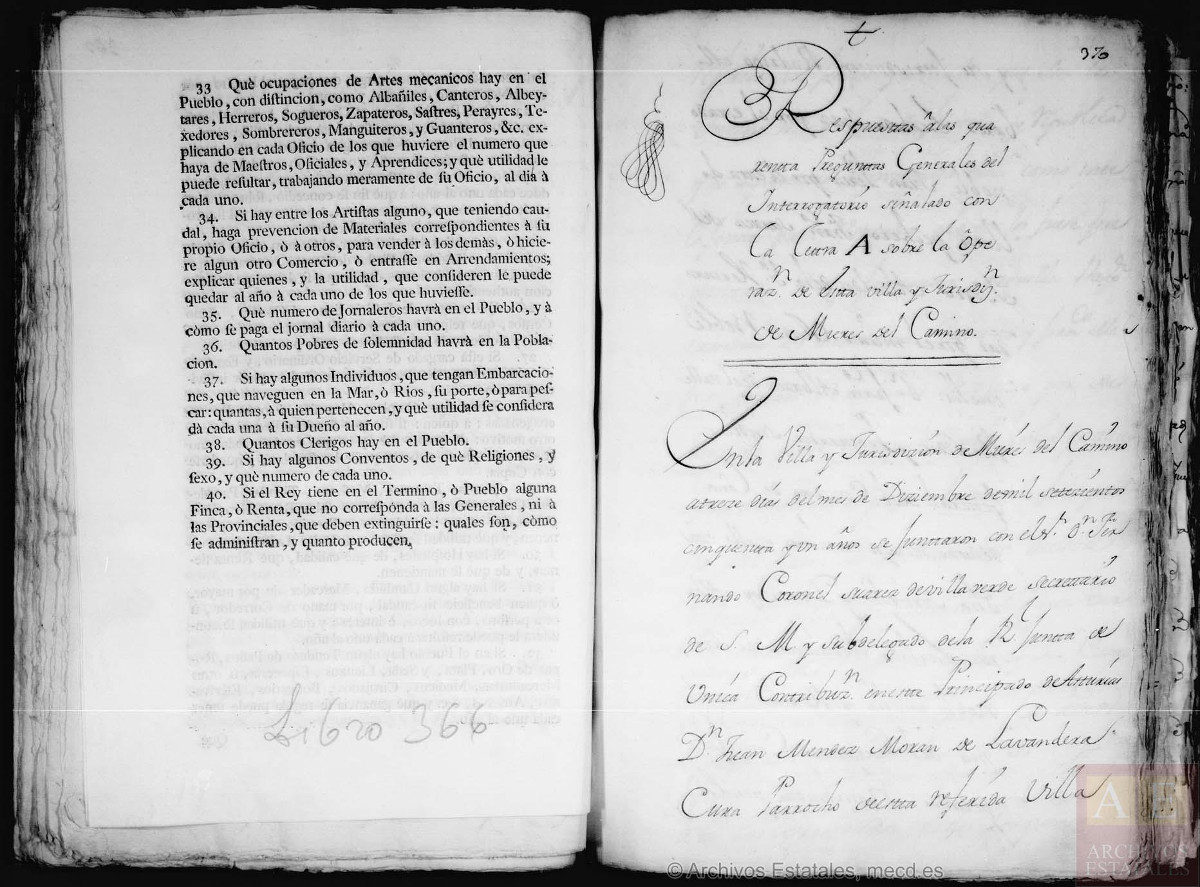 33 Què ocupaciones de Artes mecanicos hay en el
Pueblo, con diſtincion, como Albañiles, Canteros, Albey-
tares, Herreros, Sogueros, Zapateros, Saſtres, Perayres, Te-
xedores, Sombrereros, Manguiteros, y Guanteros, &c. ex-
plicando en cada Oficio de los que huviere el numero que
haya de Maeſtros, Oficiales, y Aprendices; y què utilidad le
puede reſultar, trabajando meramente de ſu Oficio, al dia à
cada uno.
34. Si hay entre los Artiſtas alguno, que teniendo cau-
dal, haga prevencion de Materiales correſpondientes à ſu
propio Oficio, ò à otros, para vender à los demàs, ò hicie-
re algun otro Comercio, ò entraſſe en Arrendamientos;
explicar quienes, y la utilidad, que conſideren le puede
quedar al año à cada uno de los que huvieſſe.
35. Què numero de Jornaleros havrà en el Pueblo, y à
còmo ſe paga el jornal diario à cada uno.
36. Quantos Pobres de ſolemnidad havrà en la Pobla-
cion.
37. Si hay algunos Individuos, que tengan Embarcacio-
nes, que naveguen en la Mar, ò Rios, ſu porte, ò para peſ-
car: quantas, à quien pertenecen, y què utilidad ſe conſidera
dà cada una à ſu Dueño al año.
38. Quantos Clerigos hay en el Pueblo.
39. Si hay algunos Conventos, de què Religiones, y
ſexo, y què numero de cada uno.
40. Si el Rey tiene en el Termino, ò Pueblo alguna
Finca, ò Renta, que no correſponda à las Generales, ni à
las Provinciales, que deben extinguirſe: quales ſon, còmo
ſe adminiſtran, y quanto producen.
Libro 366
370
Respuestas â las qua
renta Preguntas Generales del
Interrogatório señalado con
La Letra A sobre la Ôpe
raz.n de esta villa y Jurisdiz.n
de Mieres del Camino.
En la Villa y Jurisdizión de Mieres del Camino
atreze dias del mes de Diziembre demil setezientos
cinquenta y un años se Junttaron con el S.r D.n Fer
nando Coronel suarez devilla verde secrettario
de S. M y subdelegado dela R.l Juntta de
Unica Contribuz.n en este Principado de Asturias
D.n Juan Mendez Moran de Lavandera
Cura Parrocho de esta referida Villa
© Archivos Estatales, mecd.es
AE
ARCHIVOS
ESTATALES